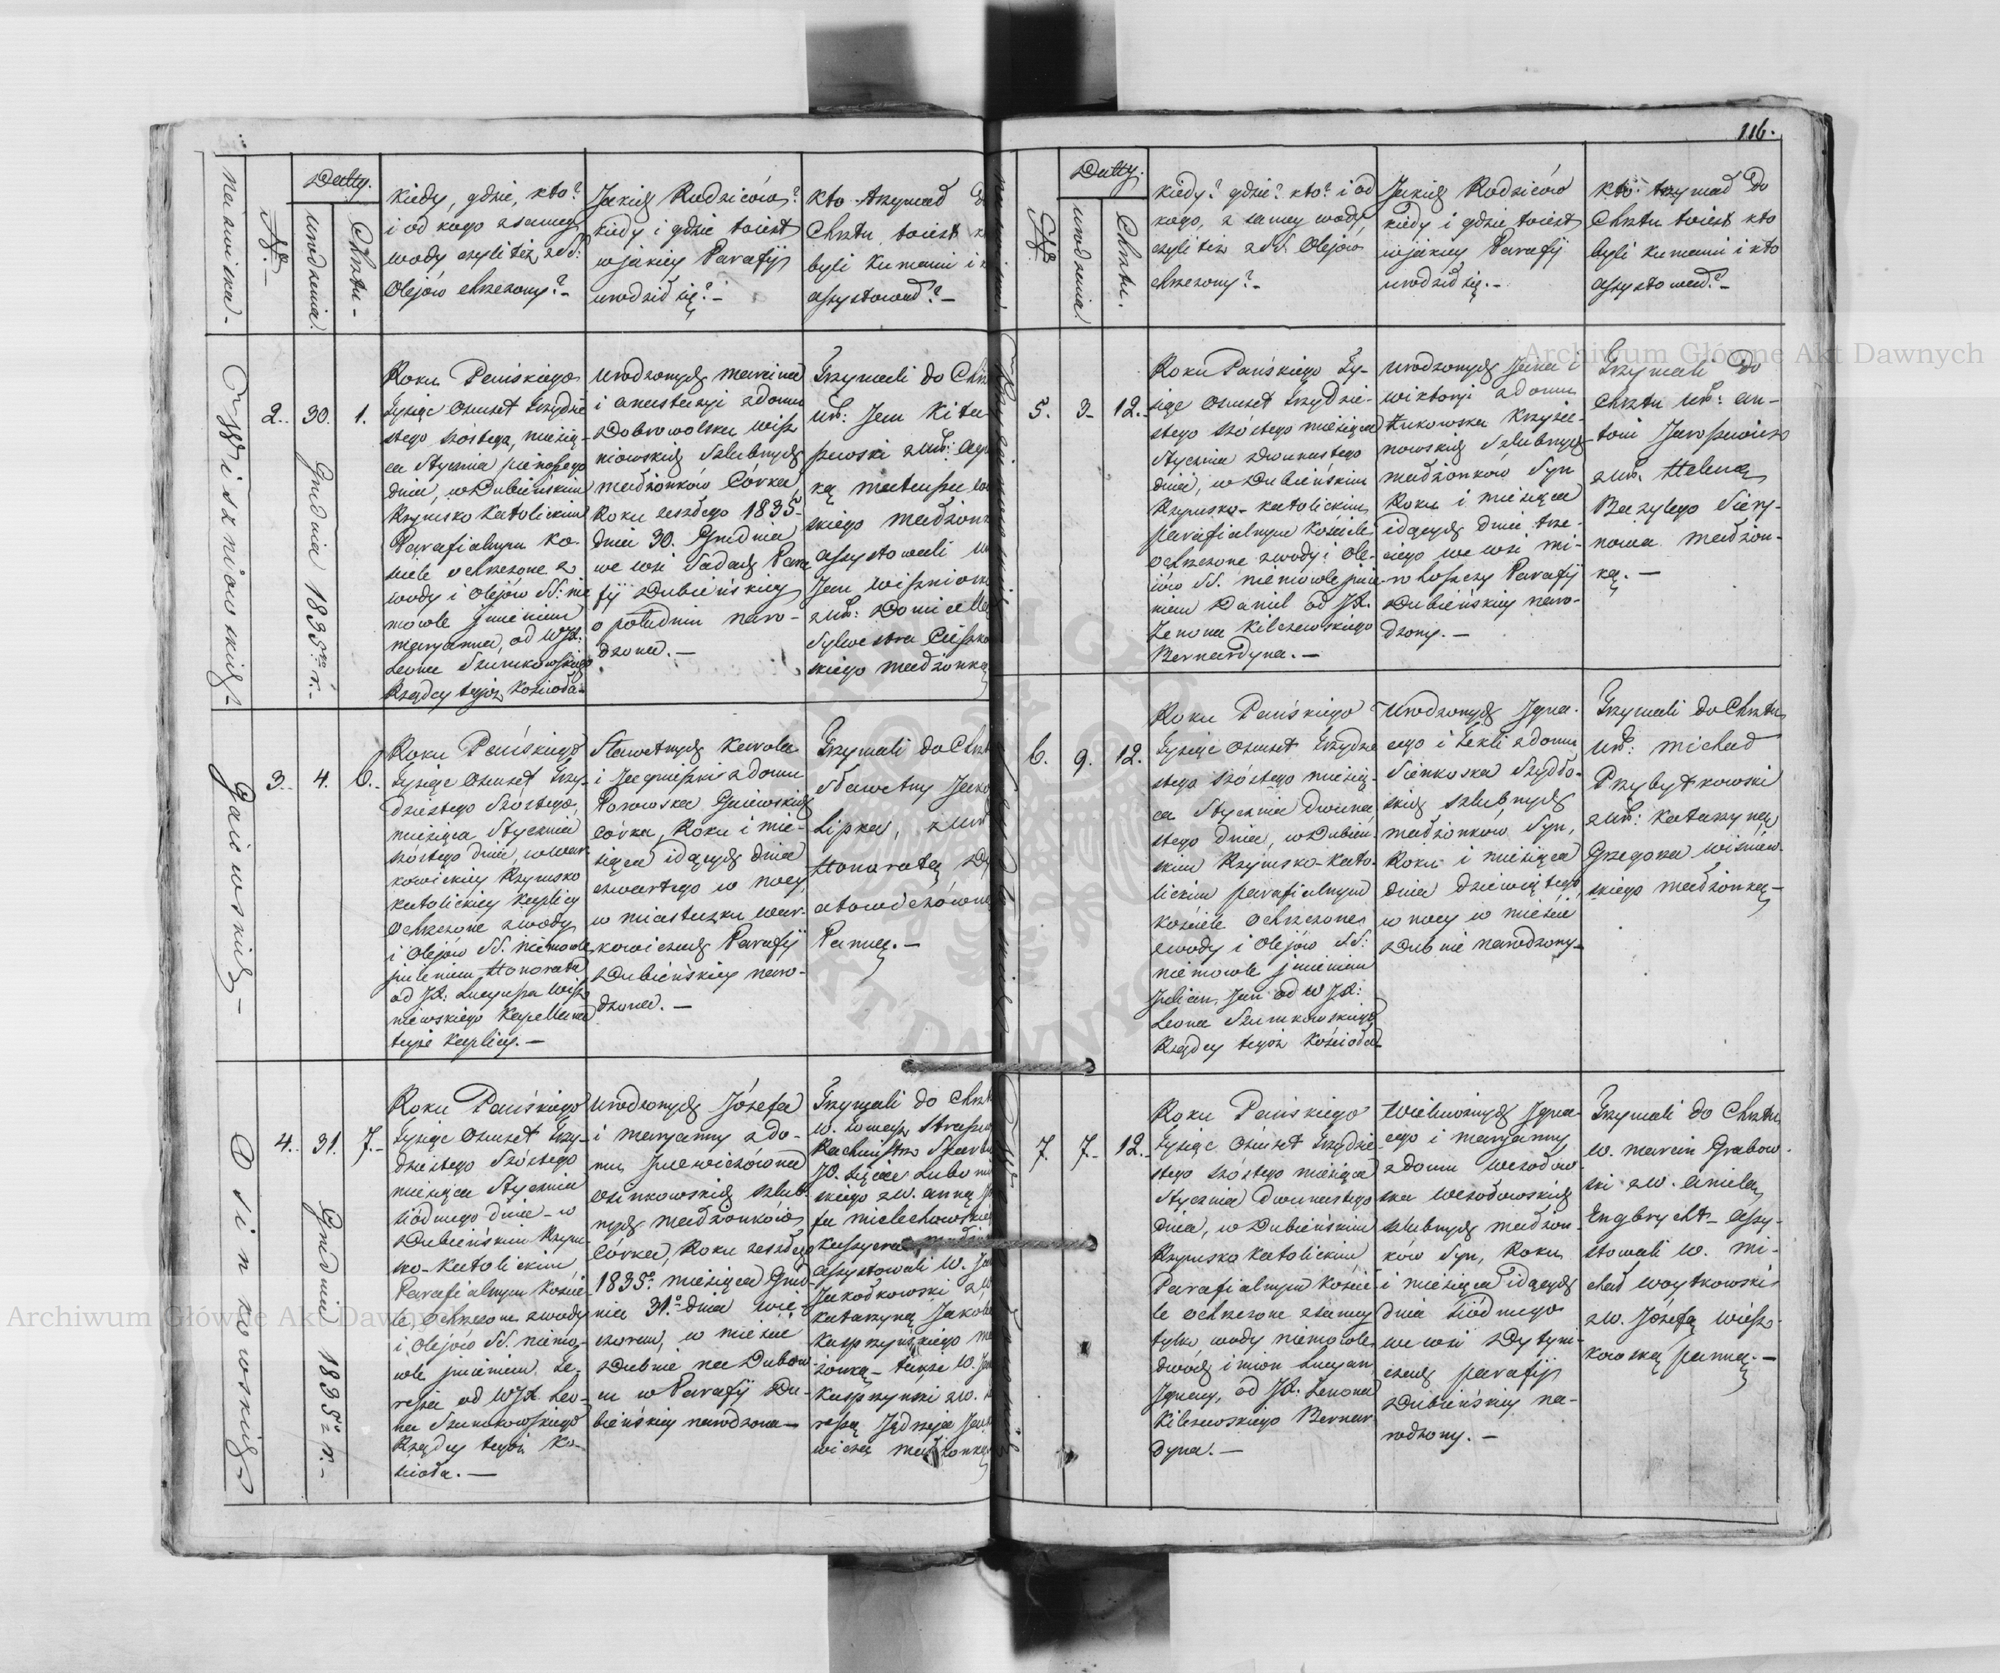 116.
nazwiska.
No.
Datty.
urodzenia.
Chrztu.
kiedy, gdzie, kto?
i od kogo z samey
wody czyli też z SS:
Olejów chrzczony?-
Jakich Rodziców?
kiedy i gdzie toiest
w jakiey Parafij
urodził się?-
kto trzymał
Chrztu toiest
byli Kumami i
assystował?-
Wiszniowskich
2.
30.
Grudnia 1835go r.
1.
Roku Pańskiego
Tysiąc Osmset trzydzie-
stego szóstego, miesią-
ca Stycznia pierwszego
dnia, w Dubieńskim
Rzymsko Katolickim
Parafialnym Ko-
ściele ochrzczone z
wody i Olejów SS: nie
mowle Jmieniem
Maryanna, od WJX:
Leona Szumkowskiego
Rządcy tegoż Kościoła
Urodzonych Marcina
i Anastazyi z domu
Dobrowolska Wisz
niowskich Szlubnych
małżonków Córka,
Roku zeszłego 1835
dnia 30. Grudnia
we wsi Sadach Para
fij Dubieńskiey
o południu naro-
dzona.-
Trzymali do Chrz
Ur: Jan Kita
szewski z Ur:
ką Mateusza
skiego małżonk
assystowali
Jan Wiszniow
z Ur:
Sylwestra
skiego małżonką
Gaiewskich
3.
4.
6.
Roku Pańskiego
Tysiąc Osmset trzy-
dziestego Szóstego
miesiąca Stycznia
szóstego dnia, w War-
kowickiey Rzymsko
katolickiey Kaplicy
Ochrzczone z wody
i Olejów SS. niemowle
jmieniem Honorata
od JX: Lucyusza Wisz
niewskiego Kapellana
teyże Kaplicy.-
Sławetnych Karola
i Jagnieszki z domu
Porowska Gaiewskich
Córka, Roku i mie-
siąca idących dnia
czwartego w nocy,
w miasteczku War-
kowiczach Parafij
Dubieńskiey naro-
dzona.-
Trzymali do Chrzt
Sławetny Jako
Lipka, z Ur
Honoratą
Panną.-
Osinkowskich
4.
31.
Grudnia 1835go r.
7.
Roku Pańskiego
Tysiąc Osmset trzy-
dziestego Szóstego
miesiąca Stycznia
siódmego dnia w
Dubieńskim Rzym-
sko-Katolickim
Parafialnym Koście
le Ochrzczone z wody
i Olejów SS. niemo-
wle jmieniem Te-
ressa od WJX. Leo-
na Szumkowskiego
Rządcy tegoż Ko-
ścioła.-
Urodzonych Józefa
i Maryanny z do-
mu Jnewiczówna
Osinkowskich szlub-
nych małżonków
Córka, Roku zeszłego
1835o miesiąca Grud-
nia 31.o dnia wie-
czorem, w mieście
Dubnie na
w Parafij Du-
bieńskiey narodzona-
Trzymali do Chrzt
W. Tomasz
Rachmistrz Skarbu
JO. Xięcia Lubomir
skiego z W. Anną
fa Miclechowskie
Kassyera małżon
assystowali W.
Jakodkowski z W
Katarzyną Jakób
Kasprzyckiego
żonką- także W.
z W.
ressą Jędrzeja
wicza małżonką
nazwiska
No
Datty.
urodzenia.
Chrztu.
kiedy? gdzie? kto? i od
kogo, z samey wody
czyli też z SS. Olejów
chrzczony?-
Jakich Rodziców
kiedy i gdzie toiest
w jakiey Parafij
urodził się.-
Kto trzymał do
Chrztu toiest kto
byli Kumami i kto
assystował?-
5.
3
12.
Roku Pańskiego Ty-
siąc Osmset trzydzie-
stego szóstego miesiąca
Stycznia dwunastego
dnia, w Dubieńskim
Rzymsko-katolickim
parafialnym Kościele
ochrzczone z wody i Ole-
jów SS. niemowle jmie-
niem Daniel od JX.
Zenona Kilczewskiego
Bernardyna.-
Urodzonych Jana i
Wiktoryi z domu
Żukowska Krzyża-
nowskich Szlubnych
małżonków Syn
Roku i miesiąca
idących dnia trze-
ciego we wsi Mi-
rohoszczy Parafij
Dubieńskiey naro-
dzony.-
Trzymali do
Chrztu Ur: An-
toni
z Ur. Heleną
Bazylego
małżon-
ką.-
6.
9.
12.
Roku Pańskiego
Tysiąc Osmset trzydzie
stego szóstego miesią-
ca Stycznia dwuna
stego dnia, w Dubień-
skim Rzymsko-Kato-
lickim parafialnym
Kościele Ochrzczone
z wody i Olejów SS:
niemowle jmieniem
Julian Jan od WJX:
Leona Szumkowskiego
Rządcy tegoż Kościoła
Urodzonych Igna-
cego i Tekli z domu
Sienkoska Szydło-
skich szlubnych
małżonków Syn,
Roku i miesiąca
dnia dziewiątego
w nocy w mieście
Dubnie narodzony-
Trzymali do Chrztu
Ur: Michał
Przybytkowski
z Ur: Katarzyną
Grzegorza Wiśniew-
skiego małżonką-
7.
7.
12.
Roku Pańskiego
Tysiąc Ośmset trzydzie
stego szóstego miesiąca
Stycznia dwunastego
dnia, w Dubieńskim
Rzymsko Katolickim
Parafialnym Koście
le Ochrzczone z samey
tylko wody niemowle
dwóch imion Lucyan
Ignacy, od JX. Zenona
Kilczewskiego Bernar
dyna.-
Wielmożnych Igna-
cego i Maryanny
z domu Wesołow
ska Wesołowskich
szlubnych małżon-
ków Syn, Roku
i miesiąca idących
dnia siódmego
we wsi Dytyni-
czach parafij
Dubieńskiey na-
rodzony.-
Trzymali do Chrztu
W. Marcin Grabow-
ski z W. Anielą
Engbrycht- assy-
stowali W. Mi-
chał Woytkowski
z W. Józefą Wiesz-
kowską panną.-
Archiwum Główne Akt Dawnych
Archiwum Główne Akt Dawnych